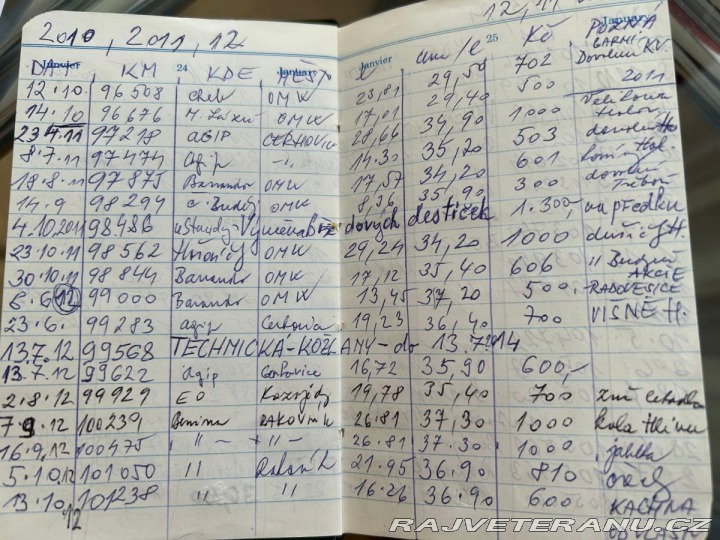 2010, 2011, 12
12,11
Janvier 24 Januar Janvier 25 Januar
DAT KM KDE MĚSTO L cena/l Kč POZNÁ
12.10. 96508 Cheb OMW 23,81 29,50 702 GARMI Dovolená KV.
14.10 96676 M. Lázně OMW 17,01 29,40 500 2011
23.4.11 97218 AGIP CERHOVICE 28,66 34,90 1000
8.7.11 97474 Agip -"- 14.30 35,20 503
18.8.11 97875 Barrandov OMW 17,57 34,20 601
14.9 98294 Č. Buděj OMW 8,36 35,90 300
4.10.2011 98486 Výměna brzdových destiček 1.300, na předku
23.10.11 98562 OMW 29,24 34,20 1000
30.10.11 98844 Barrandov OMW 17,12 35,40 606 AKCIE
8.6.12 99000 Barrandov OMW 13,45 37,20 500. RADOVESICE
23.6. 99283 Agip 19,23 36,40 700 VIŠNĚ H.
13.7.12 99568 TECHNICKÁ-KOŽLANY-do 13.7.14
13.7.12 99622 Agip 16,72 35.90 600,-
2.8.12 99929 EO 19,78 35,40 700
7.9.12 100239 Benzina RAKOVNÍK 26.81 37,30 1000
16.9.12 100475 -"- -"- 26.81 37.30 1000 jablka
5.10.12 101050 " 21.95 36.90 810 ořechy
13.10.12 101238 " " 16.26 36.90 600 KACHNA
RAJVETERANU.CZ